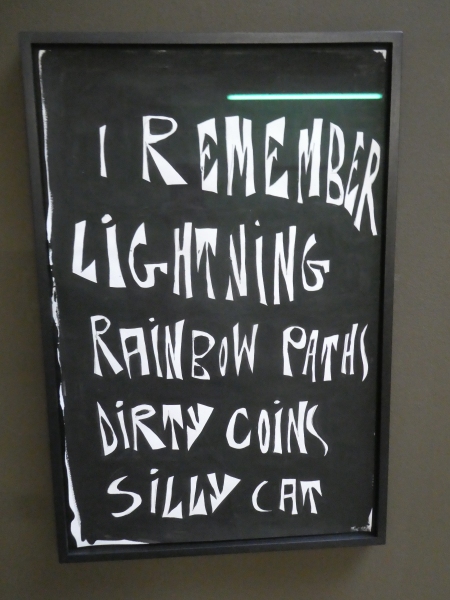 I REMEMBER
LiGHTNiNG
RAiNBOW PATHS
DiRTY COiNS
SiLLY CAT